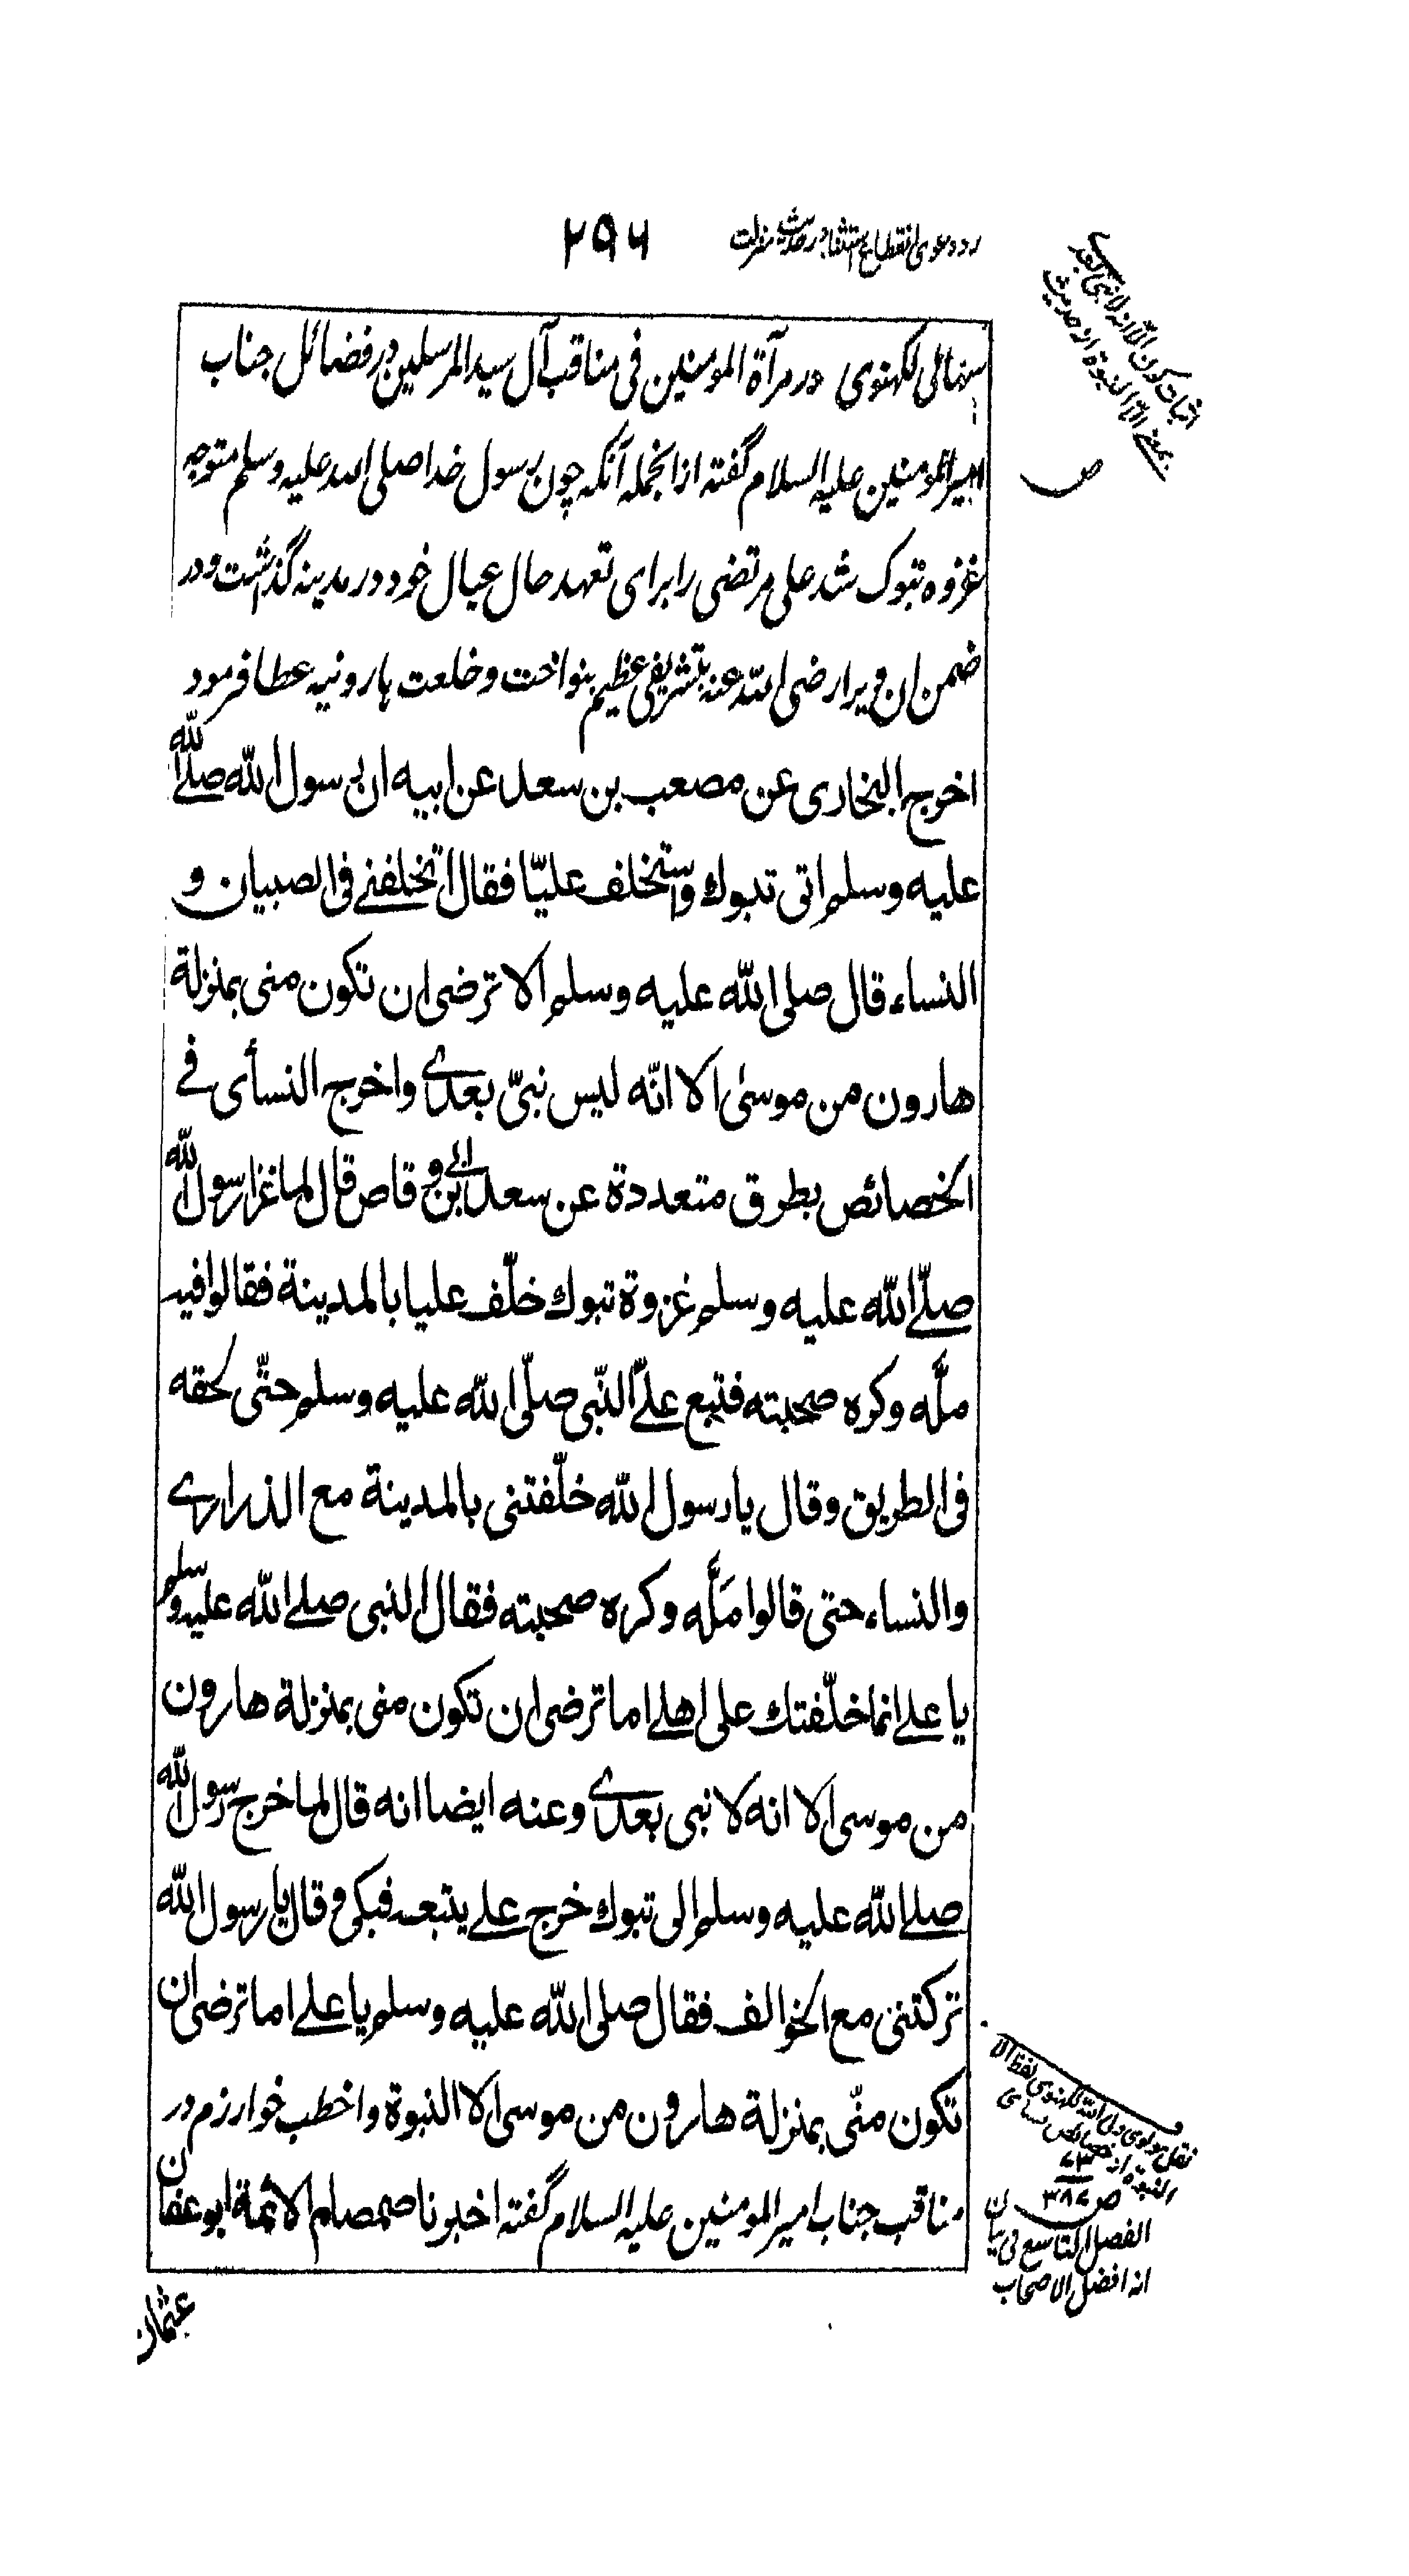 رد دعوی انقطاع استثنا در حدیث منزلت
۲۹۶
اثبات کون الا انه لا نبی بعدی
بمعنی الا النبوة از حدیث
سهالی لکهنوی در مرآة المومنین فی مناقب آل سید المرسلین در فضائل جناب
امیر المومنین علیه السلام گفته ازانجمله آنکه چون رسول خدا صلی الله علیه وسلم متوجه
غزوه تبوک شد علی مرتضی را برای تعهد حال عیال خود در مدینه گذاشت و در
ضمن ان ویرا رضی الله عنه بتشریفی عظیم بنواخت و خلعت هارونیه عطا فرمود
اخرج البخاری عن مصعب بن سعد عن ابیه ان رسول الله صلے الله
علیه وسلم اتی تبوك واستخلف علیّا فقال اتخلفنے فی الصبیان و
النساء قال صلی الله علیه وسلم الا ترضی ان تکون منی بمنزلة
هارون من موسیٰ الا انّه لیس نبیّ بعدے واخرج النسأی فے
الخصائص بطرق متعددة عن سعد بن ابے وقاص قال لما غزا رسول الله
صلّے الله علیه وسلم غزوة تبوك خلّف علیا بالمدینة فقالوا فیه
ملَّه وکره صحبته فتبع علےّ النّبی صلّی الله علیه وسلم حتّی لحقه
فی الطریق وقال یا رسول الله خلّفتنی بالمدینة مع الذرارے
والنساء حتی قالوا مَلَّه وکره صحبته فقال النبی صلے الله علیه وسلم
یا علے انما خلّفتك علی اهلے اما ترضی ان تکون منی بمنزلة هارون
من موسی الا انه لا نبی بعدے وعنه ایضا انه قال لما خرج رسول الله
صلے الله علیه وسلم الی تبوك خرج علے یتبعه فبکی وقال یا رسول الله
ترکتنی مع الخوالف فقال صلی الله علیه وسلم یا علے اما ترضی ان
تکون منّی بمنزلة هارون من موسی الا النبوة واخطب خوارزم در
مناقب جناب امیر المومنین علیه السلام گفته اخبرنا صمصام الائمة ابو عفان
نقل مولوی ولی الله لکهنوی لفظ الا
النبوة از خصائص نسای
ص ۳۸۷
الفصل التاسع فی بیان
انه افضل الاصحاب
عثمان